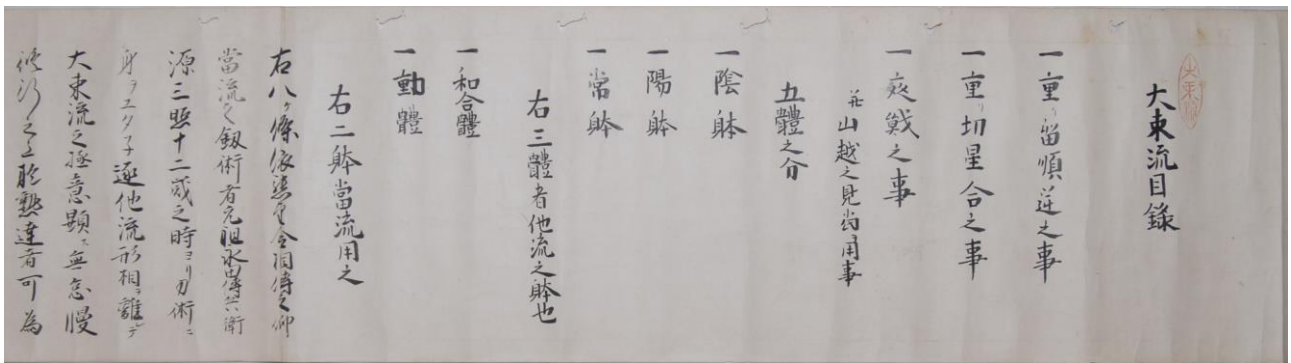 大東流目録
一重リ留順逆之事
一重リ切星合之事
一夜戦之事
并山越之見当用事
五體之分
一陰躰
一陽躰
一常躰
右三體者他流之躰也
一和合體
一動體
右二躰當流用之
右八ケ條依懇望令相傳之仰
當流之釼術者元祖
源三照十二歳之時ヨリ刀術ニ
身ヲユタ子逐他流形相ヲ離テ
大東流之極意顕ニ無怠慢
修行之上於熟達者可為